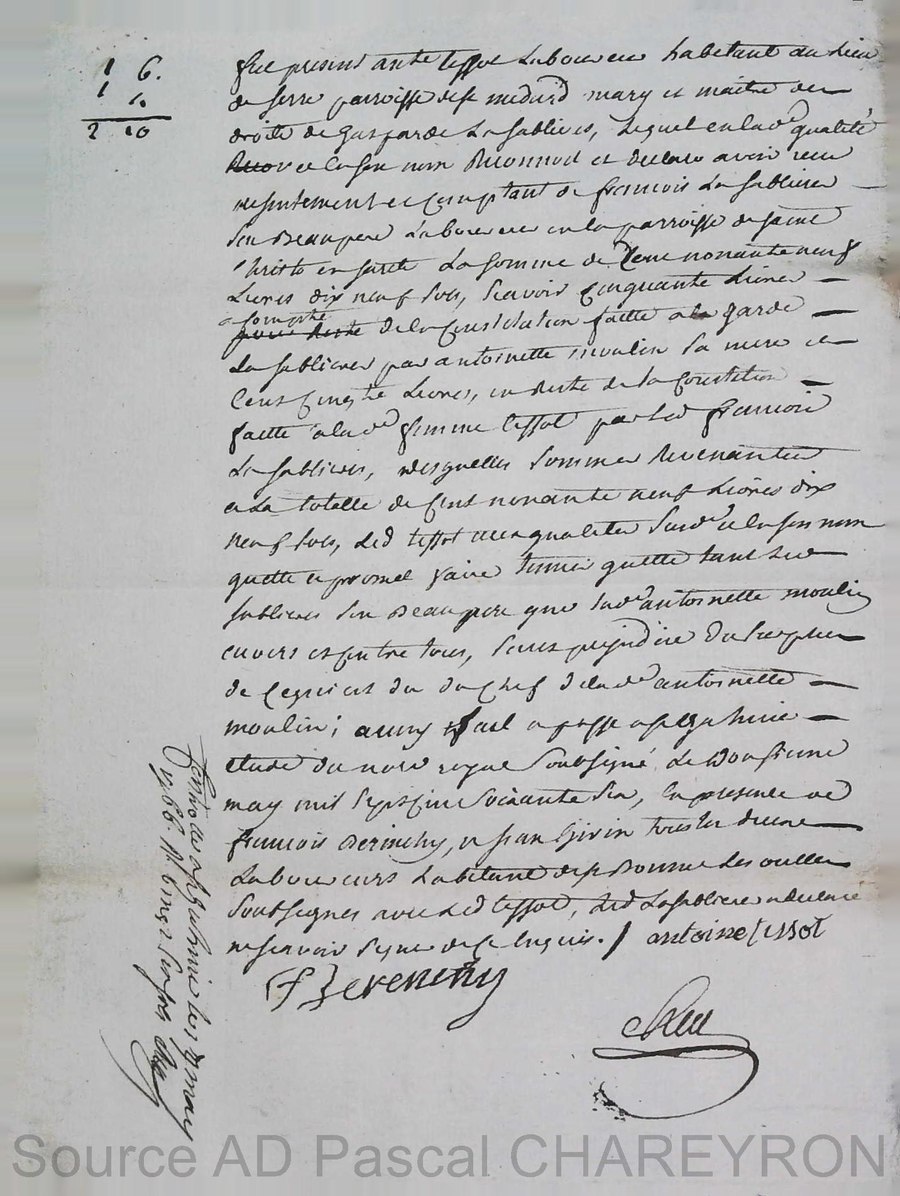 1 6.
1 4.
2 10
fut present ante tessot Laboureur habitant du Lieu
de serre parroisse de st medard mary et maitre des
droits de Gasparde La Sablieres, lequel en lad.e qualité
et en son nom Reconnoit et declare avoir receu
presentement et comptant de francois La Sabliere
son Beaupere Laboureur en la parroisse de saint
Christo en jaretz La somme de Cent nonante neuf
Livres dix neuf sols, scavoir Cinquante Livres
a compte
pour Reste de la Constitution faitte a la Garde
La Sablieres par antoinette moulin sa mere et
Cent Cinq.te Livres, en Reste de la Constitution
faitte a lad.e femme tessot par led francois
La Sablieres, desquelles sommes Revenantes
a La totalle de Cent nonante neuf Livres dix
neuf sols, Led tessot en sa qualite susd.e et en son nom
quitte et promet faire tenir quitte tant led
Sablieres son Beaupere que lad.e antoinette moulin
envers et contre tous, sans prejudice du surplus
de ce qui est du du Chef de lad.e antoinette
moulin; ainsy fait et passé a st
etude du no.re royal soubsigné Le Douzieme
may mil sept cent soixante six, en presence de
francois Berenchy, et jean
Laboureurs habitant de st Bonnet Les oulles
soubsignes avec Led tessot, Led La Sabliere a declaré
ne scavoir signer de ce enquis. / antoine tessot
f Berenchy
may
1766. R.